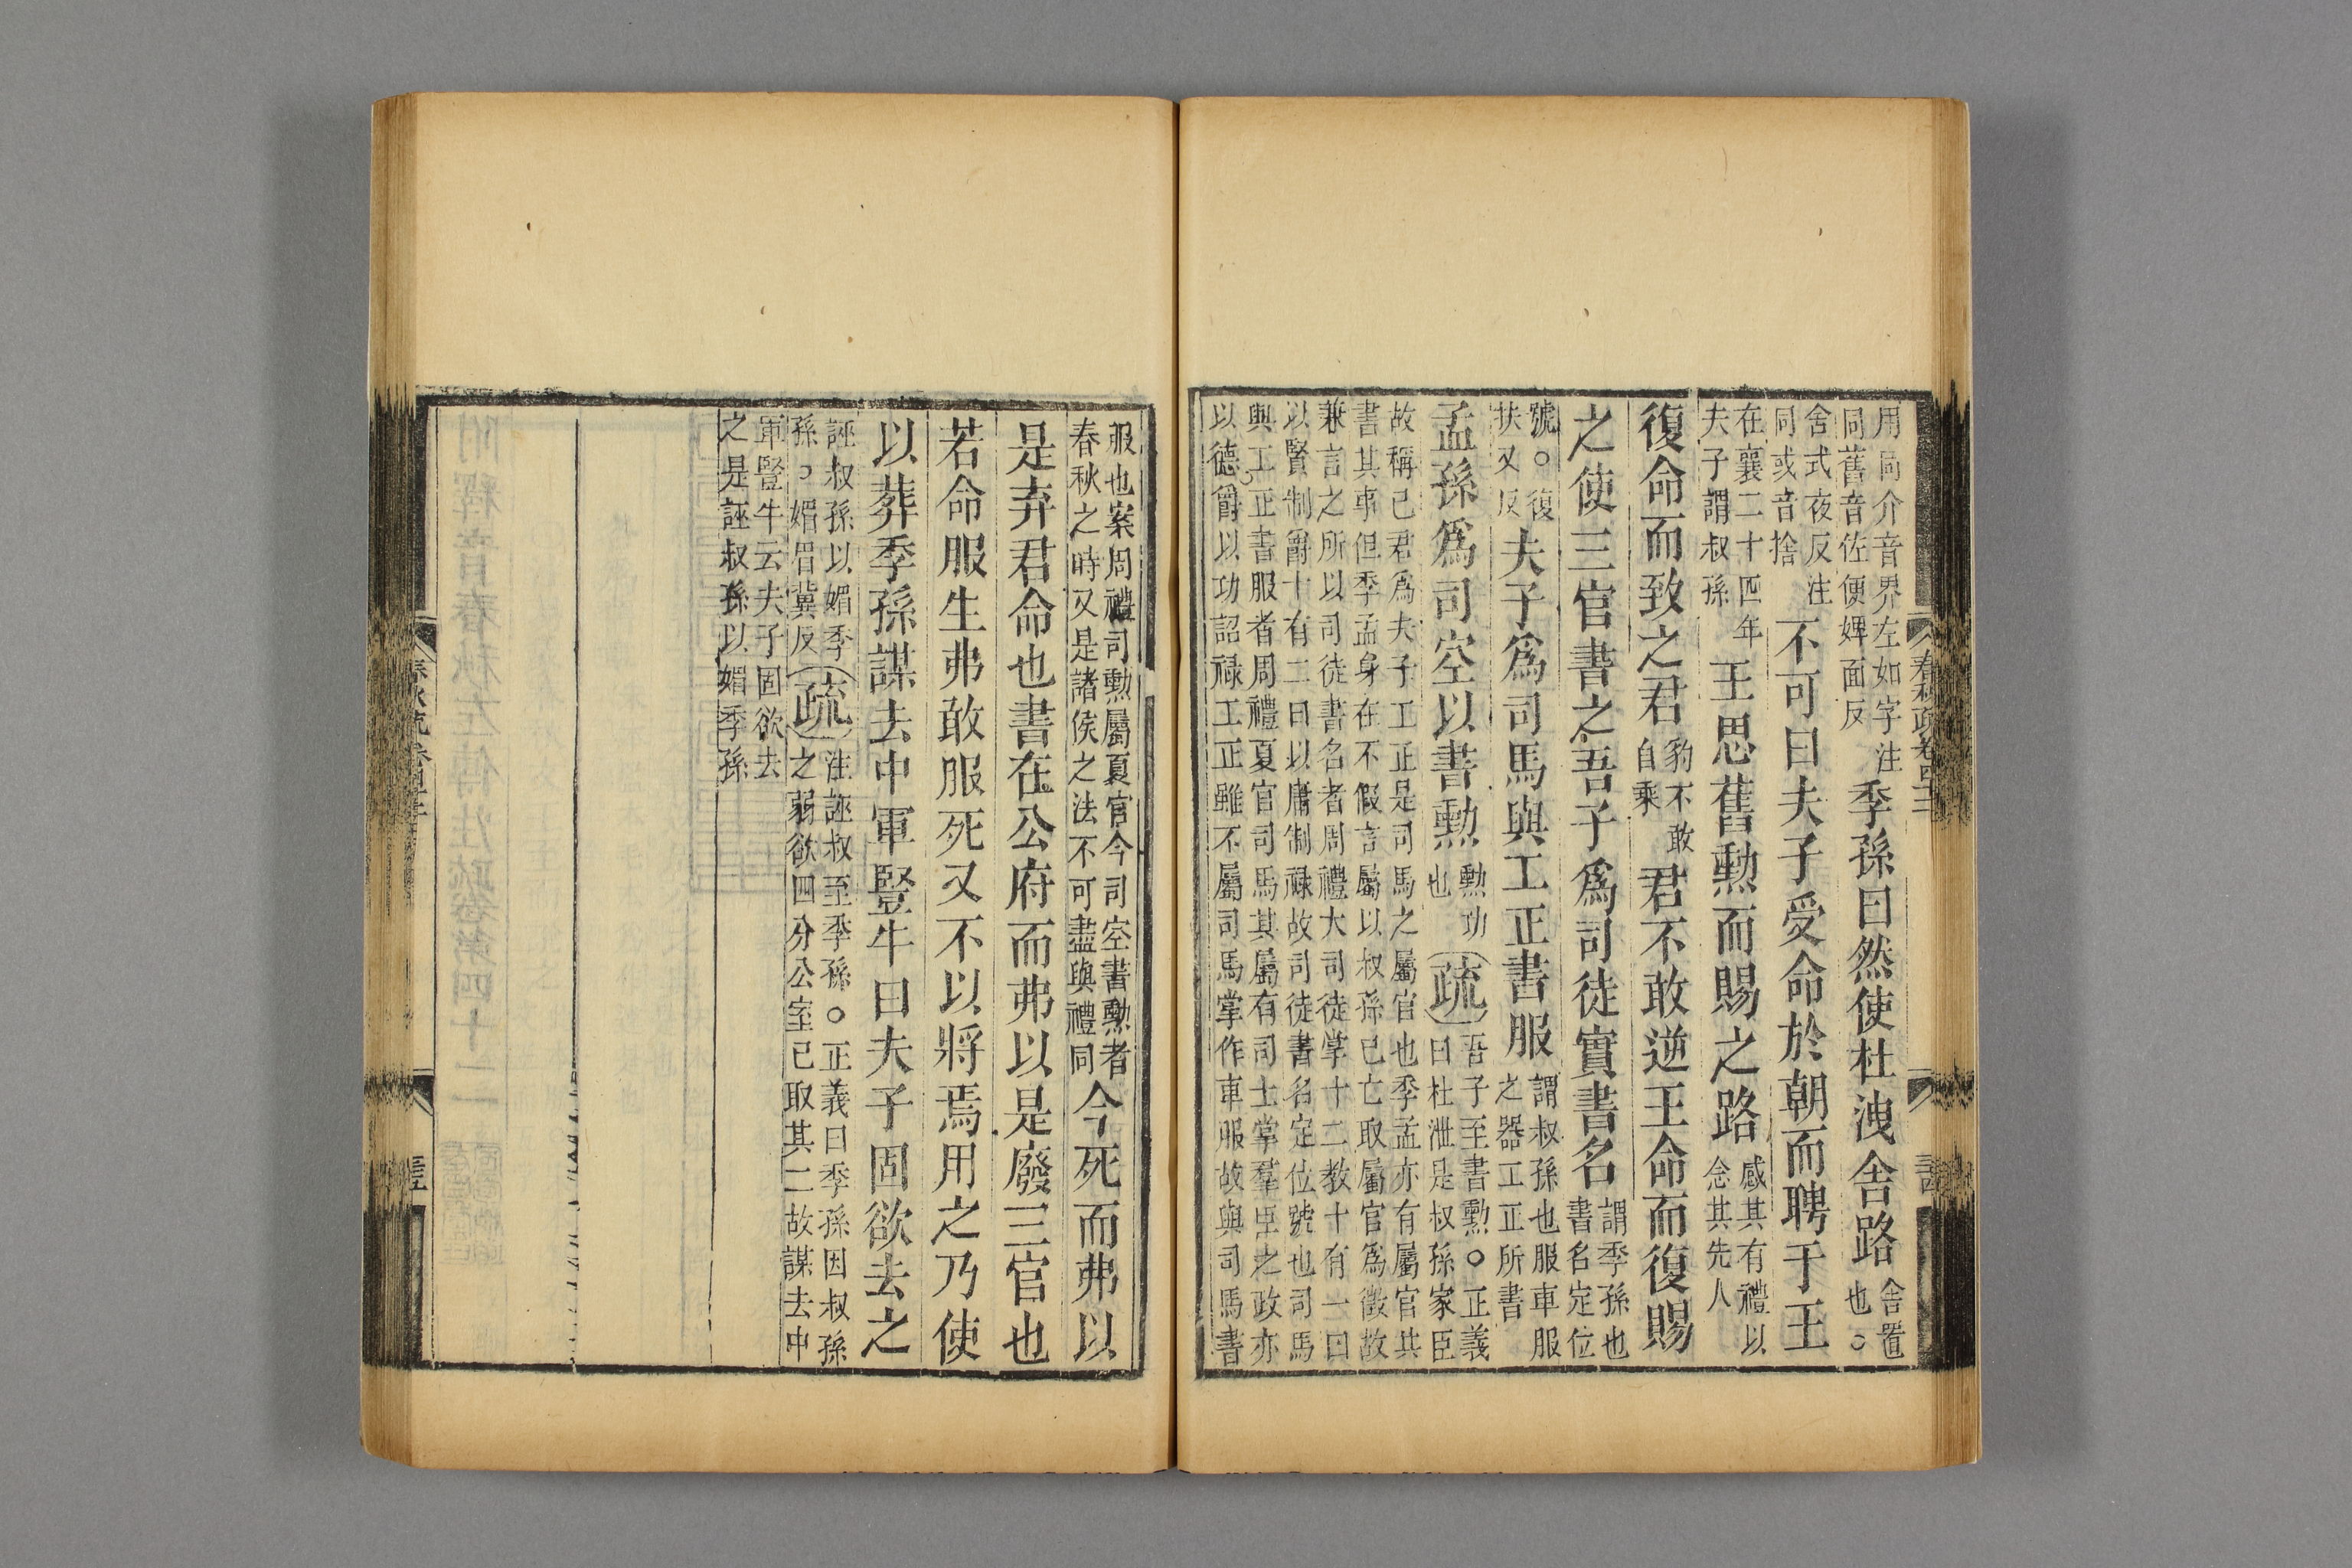 春秋疏卷四十二
用同介音界左如字注同舊音佐便婢面反季孫曰然使杜洩舍路舍置也○
舍式夜反注同或音捨不可曰夫子受命於朝而聘于王
在襄二十四年夫子謂叔孫王思舊勳而賜之路感其有禮以念其先人
復命而致之君豹不敢自乘君不敢逆王命而復賜
之使三官書之吾子爲司徒實書名謂季孫也書名定位
號○復扶又反夫子爲司馬與工正書服謂叔孫也服車服之器工正所書
孟孫爲司空以書勳勳功也疏吾子至書勳○正義曰杜泄是叔孫家臣
故稱己君爲夫子工正是司馬之屬官也季孟亦有屬官其
書其事但季孟身在不假言屬以叔孫已亡取屬官爲徵故
兼言之所以司徒書名者周禮大司徒掌十二教十有一曰
以賢制爵十有二曰以庸制祿故司徒書名定位號也司馬
與工正書服者周禮夏官司馬其屬有司士掌羣臣之政亦
以德爵以功詔祿工正雖不屬司馬掌作車服故與司馬書
服也案周禮司勳屬夏官今司空書勳者春秋之時又是諸侯之法不可盡與禮同今死而弗以
是弃君命也書在公府而弗以是廢三官也
若命服生弗敢服死又不以將焉用之乃使
以葬季孫謀去中軍豎牛曰夫子固欲去之
誣叔孫以媚季孫○媚眉冀反疏注誣叔至季孫○正義曰季孫因叔孫之弱欲四分公室已取其二故謀去中
軍豎牛云夫子固欲去
之是誣叔孫以媚季孫